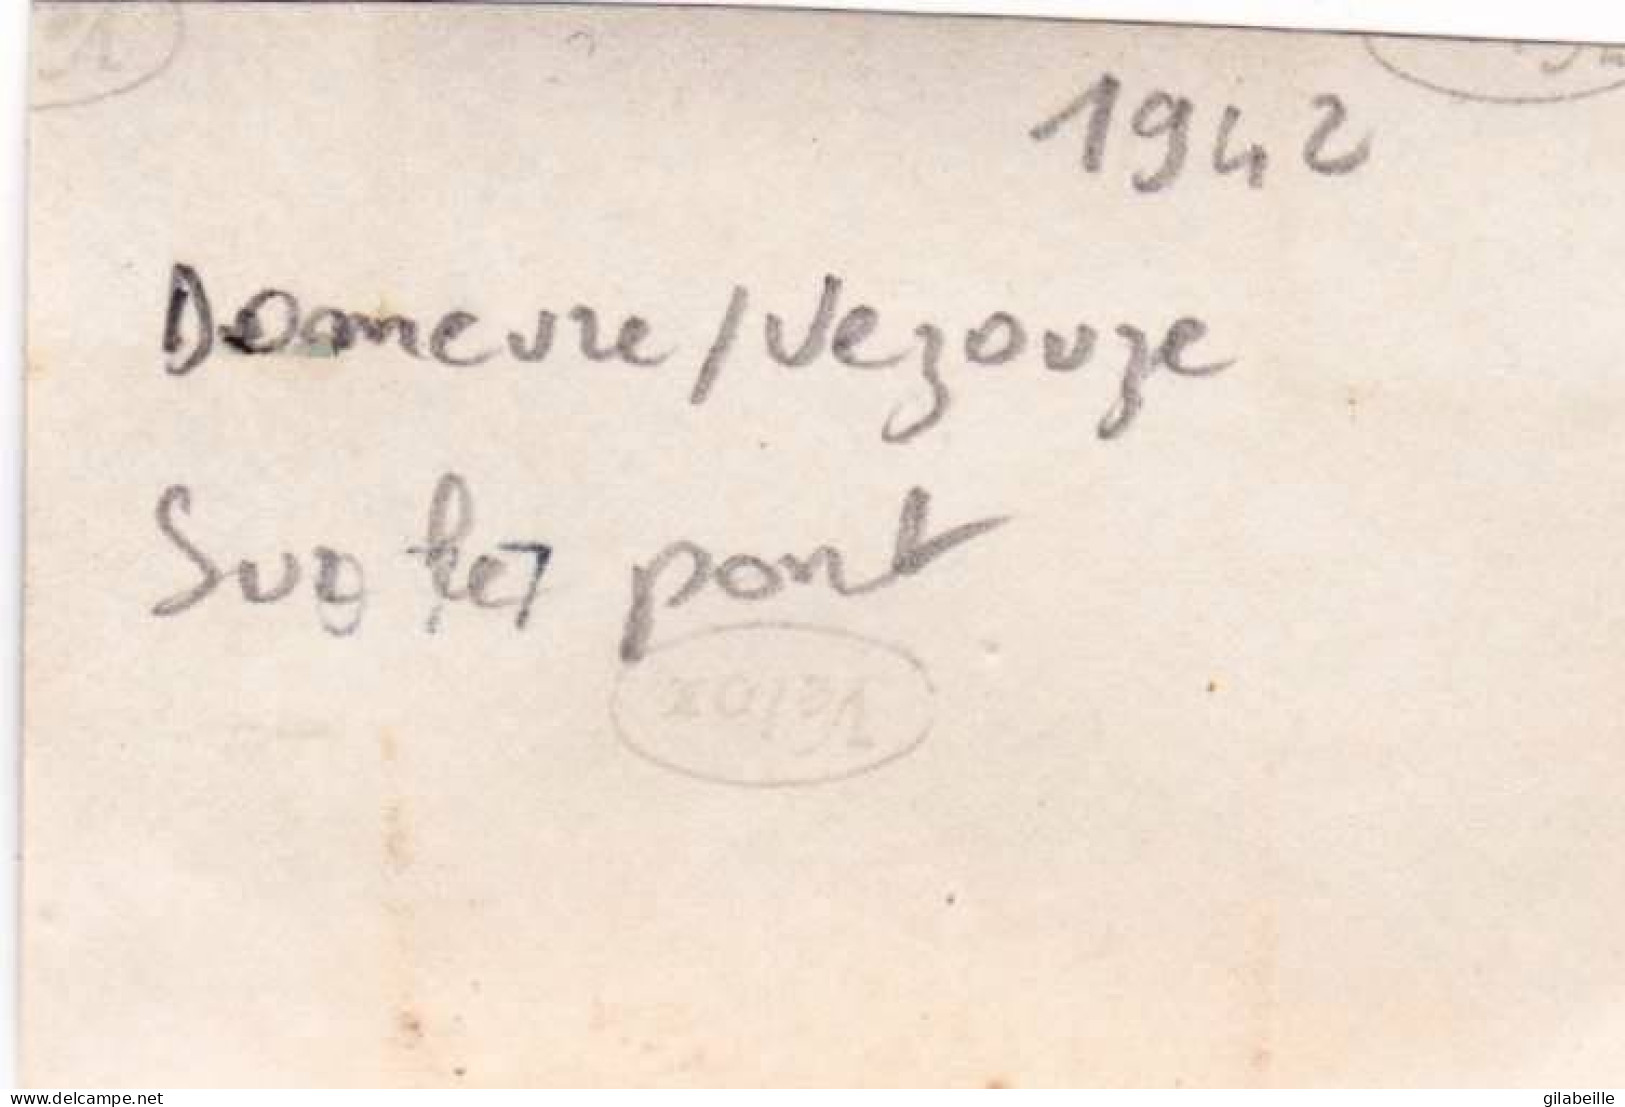 1942
Domevre / Vezouze
Sur le pont
Velox
www.delcampe.net
gilabeille